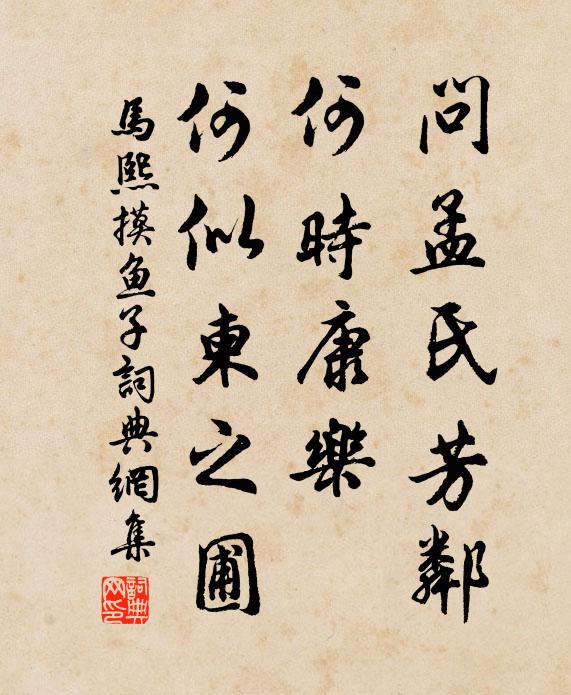 問孟氏芳鄰
何時康樂
何似東之圃
馬熙摸魚子詞典網集
詞典網印